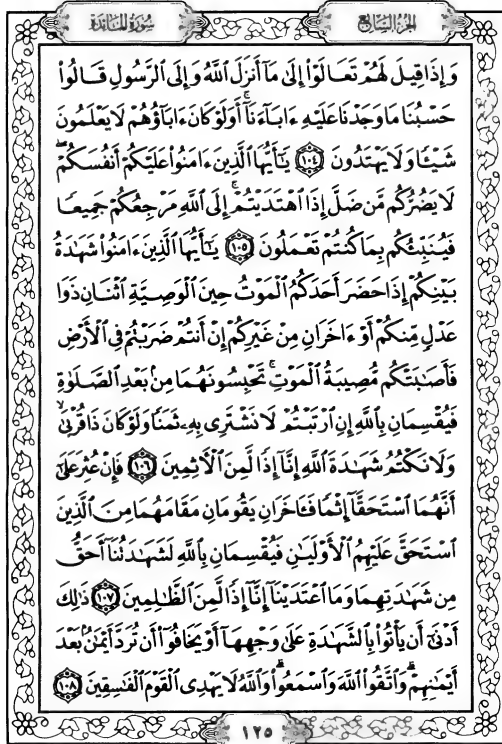 سُورَةُ المَائِدَةِ
الجُزءُ السَّابِعُ
وَإِذَا قِيلَ لَهُمْ تَعَالَوْا۟ إِلَىٰ مَآ أَنزَلَ ٱللَّهُ وَإِلَى ٱلرَّسُولِ قَالُوا۟
حَسْبُنَا مَا وَجَدْنَا عَلَيْهِ ءَابَآءَنَآۚ أَوَلَوْ كَانَ ءَابَآؤُهُمْ لَا يَعْلَمُونَ
شَيْـًٔا وَلَا يَهْتَدُونَ ١٠٤ يَـٰٓأَيُّهَا ٱلَّذِينَ ءَامَنُوا۟ عَلَيْكُمْ أَنفُسَكُمْۖ
لَا يَضُرُّكُم مَّن ضَلَّ إِذَا ٱهْتَدَيْتُمْۚ إِلَى ٱللَّهِ مَرْجِعُكُمْ جَمِيعًا
فَيُنَبِّئُكُم بِمَا كُنتُمْ تَعْمَلُونَ ١٠٥ يَـٰٓأَيُّهَا ٱلَّذِينَ ءَامَنُوا۟ شَهَـٰدَةُ
بَيْنِكُمْ إِذَا حَضَرَ أَحَدَكُمُ ٱلْمَوْتُ حِينَ ٱلْوَصِيَّةِ ٱثْنَانِ ذَوَا
عَدْلٍ مِّنكُمْ أَوْ ءَاخَرَانِ مِنْ غَيْرِكُمْ إِنْ أَنتُمْ ضَرَبْتُمْ فِى ٱلْأَرْضِ
فَأَصَـٰبَتْكُم مُّصِيبَةُ ٱلْمَوْتِۚ تَحْبِسُونَهُمَا مِنۢ بَعْدِ ٱلصَّلَوٰةِ
فَيُقْسِمَانِ بِٱللَّهِ إِنِ ٱرْتَبْتُمْ لَا نَشْتَرِى بِهِۦ ثَمَنًا وَلَوْ كَانَ ذَا قُرْبَىٰۙ
وَلَا نَكْتُمُ شَهَـٰدَةَ ٱللَّهِ إِنَّآ إِذًا لَّمِنَ ٱلْـَٔاثِمِينَ ١٠٦ فَإِنْ عُثِرَ عَلَىٰٓ
أَنَّهُمَا ٱسْتَحَقَّآ إِثْمًا فَـَٔاخَرَانِ يَقُومَانِ مَقَامَهُمَا مِنَ ٱلَّذِينَ
ٱسْتَحَقَّ عَلَيْهِمُ ٱلْأَوْلَيَـٰنِ فَيُقْسِمَانِ بِٱللَّهِ لَشَهَـٰدَتُنَآ أَحَقُّ
مِن شَهَـٰدَتِهِمَا وَمَا ٱعْتَدَيْنَآ إِنَّآ إِذًا لَّمِنَ ٱلظَّـٰلِمِينَ ١٠٧ ذَٰلِكَ
أَدْنَىٰٓ أَن يَأْتُوا۟ بِٱلشَّهَـٰدَةِ عَلَىٰ وَجْهِهَآ أَوْ يَخَافُوٓا۟ أَن تُرَدَّ أَيْمَـٰنٌۢ بَعْدَ
أَيْمَـٰنِهِمْۗ وَٱتَّقُوا۟ ٱللَّهَ وَٱسْمَعُوا۟ۗ وَٱللَّهُ لَا يَهْدِى ٱلْقَوْمَ ٱلْفَـٰسِقِينَ ١٠٨
١٢٥